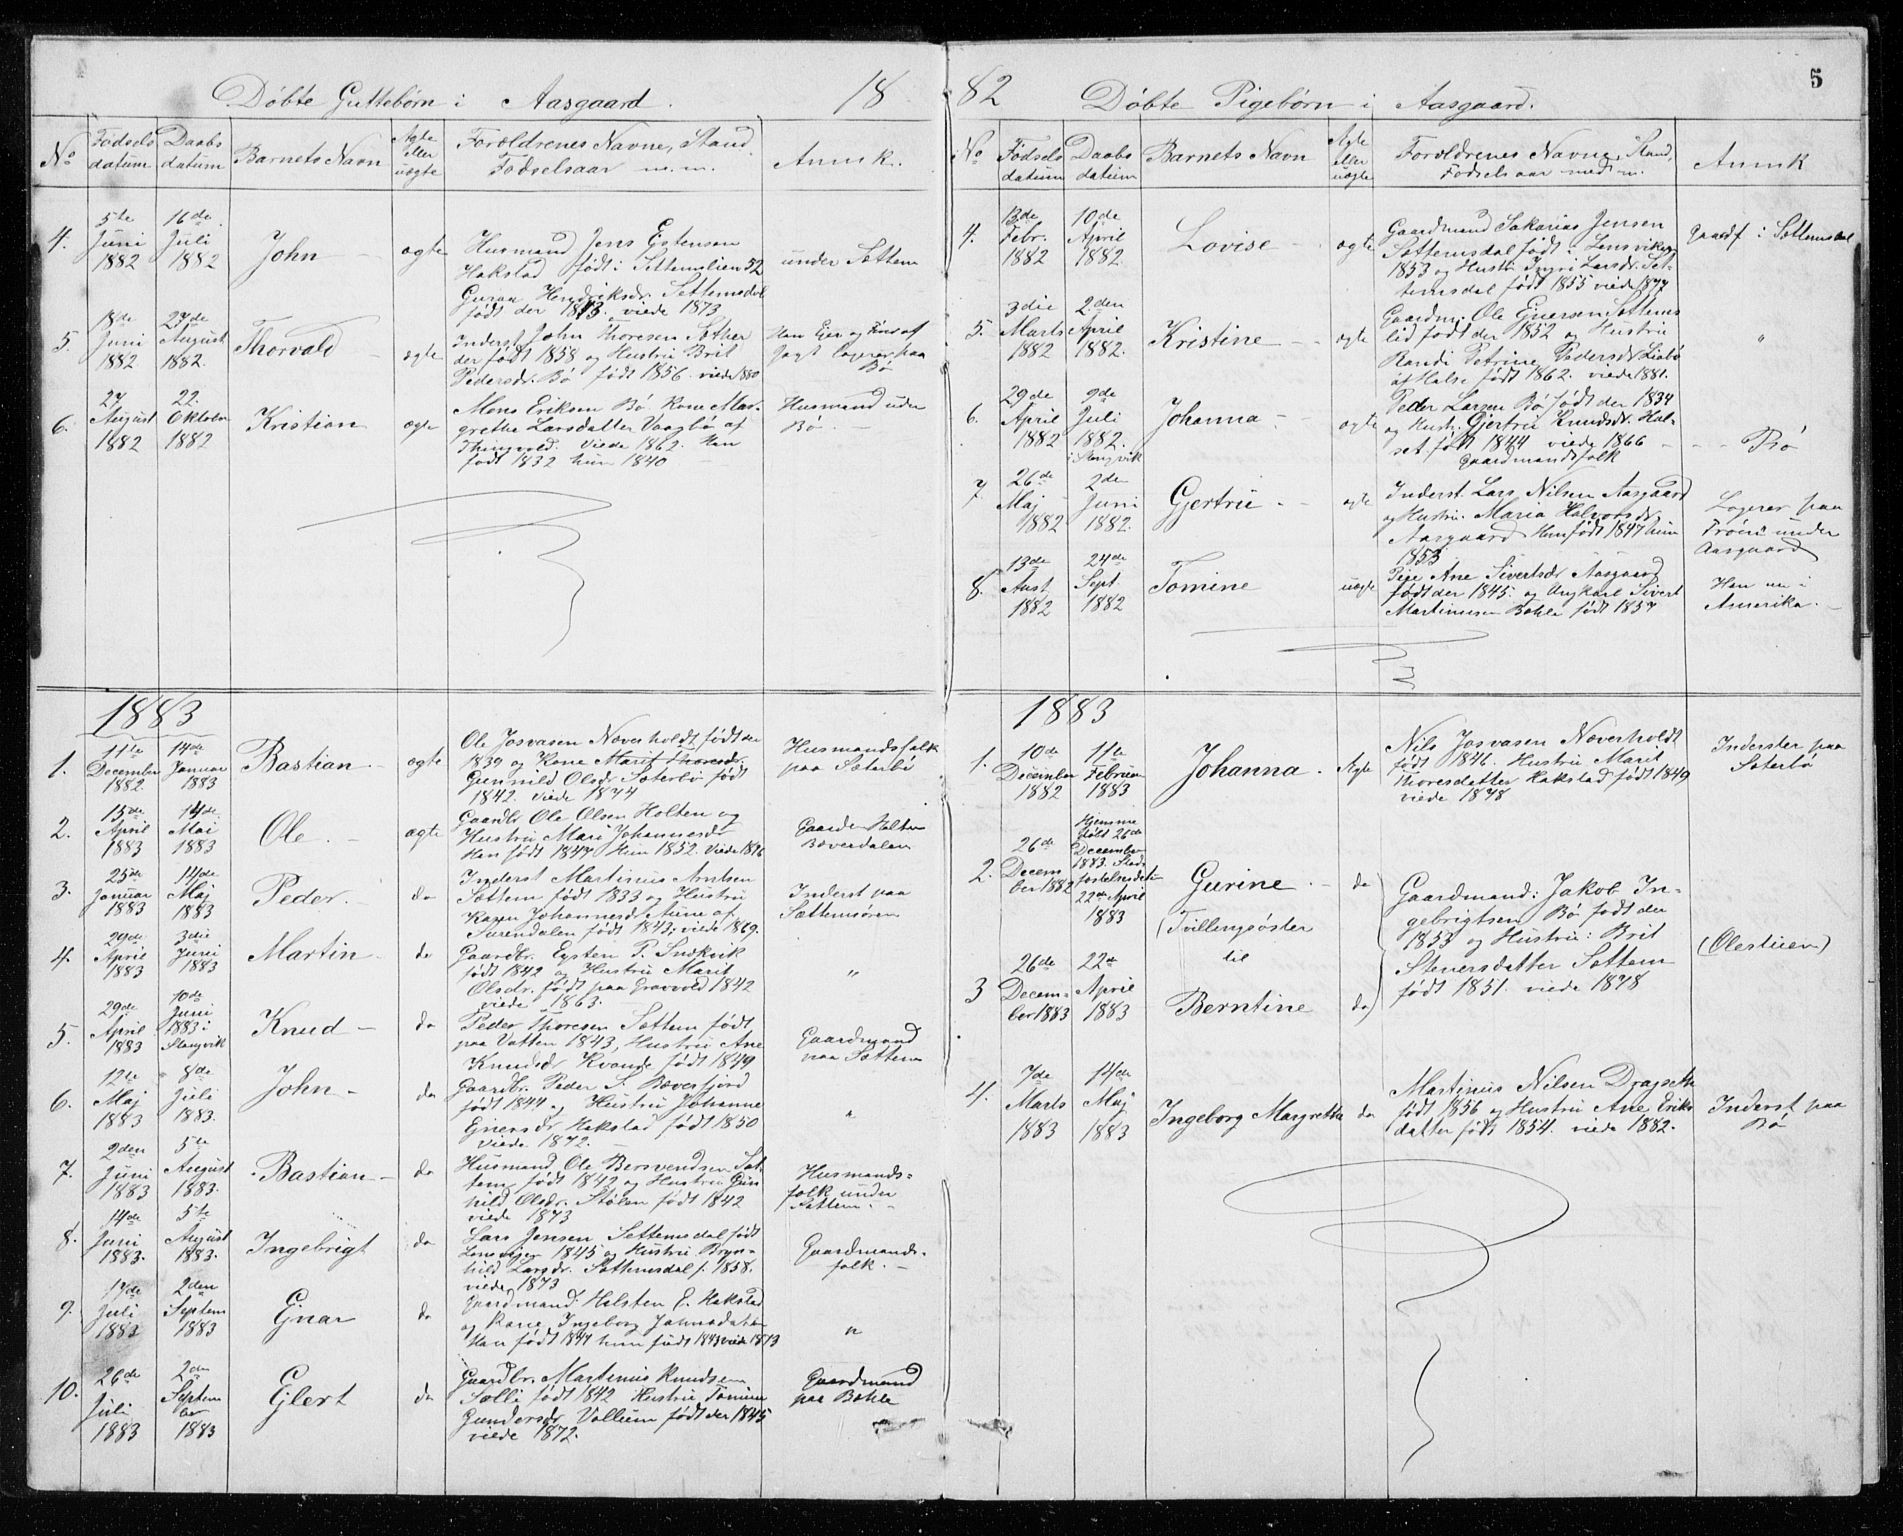 Døbte Guttebørn i Aasgaard. 18
No
Fødsels datum
Daabs datum
Barnets Navn
Ægte eller uægte
Forældrenes Navne, Stand
Fødselsaar m.m.
Anmk.
4.
5te Juni 1882
16de Juli 1882
John
ægte
Husmand Jens Estensen
Hakstad født i Settemslien 52
Guraa Hendriksdr. Settemsdal
født der 1843. viede 1873
under Settem
5.
18de Juni 1882
27de August 1882.
Thorvald
ægte
Inderst John Thoresen Sæther
der født 1858 og Hustru Brit
Pedersdr. Bø født 1856. viede 1880
Han Ejer og Fører af
Jagt logerer paa
Bø
6.
27 August 1882
22. Oktober 1882
Kristian
ægte
Mons Eriksen Bø Kone Mar-
grethe Larsdatter Vaagbø af
Thingvold. Viede 1862. Han
født 1832 hun 1840
Husmand under
Bø.
1883
1.
11te December 1882.
14de Januar 1883
Bastian
ægte
Ole Josvasen Næverholdt født der
1839 og Kone Marit Thoresdr.
Gunnild Olsdr Sæterbø født
1842. viede 1874
Husmandsfolk
paa Sæterbø
2.
15de April 1883
14de Mai 1883
Ole
ægte
Gaardbr Ole Olsen Holten og
Hustru Mari Johannesdr
Han født 1847 Hun 1852. Viede 1876
Gaarden Holten
Bæverdalen
3.
25de Januar 1883
14de Maj 1883
Peder
do
Inderst Martinus Arntsen
Settem født 1833 og Hustru
Karen Johannesdr Aune af
Surendalen født 1843; viede 1869.
Inderst paa
Settemsøren
4.
29de April 1883
3die Juni 1883
Martin
do
Gaardbr. Eysten P. Indkvik
født 1842 og Hustru Marit
Olsdr. født paa Gravvold 1842
viede 1863.
"
5.
29de April 1883
10de Juni 1883 i Stangvik
Knud
do
Peder Thoresen Settem født
paa Vatten 1843, Hustru Ane
Knudsdr Kvande født 1849
Gaardmand
paa Settem
6.
12te Maj 1883
8de Juli 1883.
John
do
Gaardbr. Peder S. Bæverfjord
født 1844 og Hustru Johanne
Ejnersdr. Hakstad født 1850
viede 1872.
"
7.
2den Juni 1883
5te August 1883.
Bastian
do
Husmand Ole Bersvendsen Set-
tem født 1842 og Hustru Gun-
hild Olsdr. Stølen født 1842
viede 1873
Husmands-
folk under
Settem.
8.
14de Juni 1883.
5te August 1883.
Ingebrigt
do
Lars Jensen Settemsdal født
Lensvigen 1845 og Hustru Bryn-
hild Larsdr. Settemsdal f. 1858.
viede 1873
Gaardmands-
folk.
9.
17de Juli 1883
2den Septem 1883
Ejnar
do
Gaardmand: Halsten E. Hakstad
og Kone Ingeborg Johnsdatter
Han født 1847 hun født 1843 viede 1873
"
10.
26de Juli 1883
2den Septem ber 1883
Ejlert
do
Gaardbr. Martinus Knudsen
Sælli født 1842 Hustru Tomine
Gundersdr. Vullum født der 1845
viede 1872.
Gaardmand
paa Bøhle
82 Døbte Pigebørn i Aasgaard. 5
No
Fødsels datum
Daabs datum
Barnets Navn
Ægte eller uægte
Forældrenes Navne, Stand,
Fødselsaar med m.
Anmk
4.
13de Febr. 1882
10de April 1882.
Lovise
ægte
Gaardmand Sakarias Jensen
Settemsdal født i Lensviken
1853 og Hustru Ingri Larsdr. Set-
temsdal født 1855 viede 1877
Gaardf. i Settemsdal
5.
3die Marts 1882
2den April 1882.
Kristine
ægte
Gaardm. Ole Einersen Settems
lid født der 1852 og Hustru
Randi Petrine Pedersdr. Liabø
af Halse født 1862. viede 1881.
"
6.
29de April 1882
9de Juli 1882. i Stangvik
Johanna
ægte
Peder Larsen Bø født der 1834
og Hustr. Gjertru Knudsdr. Hal-
set født 1844 viede 1866
Gaardmandsfolk
Bø
7.
26de Maj 1882
2den Juni 1882.
Gjertru
ægte
Inderst Lars Nilsen Aasgaard
og Hustru. Maria Halvorsdr.
Aasgaard Han født 1847 hun
1853
Logerer paa
Trøen under
Aasgaard
8.
13de Aust 1882
24de Sept. 1882
Tomine
uægte
Pige Ane Sivertsdr Aasgaard
født der 1845 og Ungkarl Sivert
Martinusen Bøhle født 1857
Han nu i
Amerika.
1883
1.
10de December 1882
11te Februar 1883
Johanna
Ægte
Nils Josvasen Næverholdt
født 1841. Hustru Marit
Thoresdatter Hakstad født 1849
viede 1878
Inderster paa
Sæterbø
2.
26de Decem ber 1882
Hjemme døbt 26de December 1883. Stadfæstelsesdatum 22de April 1883
Gurine
(Tvillingsøster
til
do
Gaardmand: Jakob In-
gebrigtsen Bø født der
1853 og Hustru: Brit
Stenersdatter Settem
født 1851. viede 1878
(Olestuen)
3
26de Decem- ber 1883
22de April 1883
Berntine
do
4.
7de Marts 1883
14de Maj 1883
Ingeborg Margretha
do
Martinus Nilsen Dragseth
født 1856 og Hustru Ane Eriks
datter født 1854. viede 1882.
Inderst paa
Bø